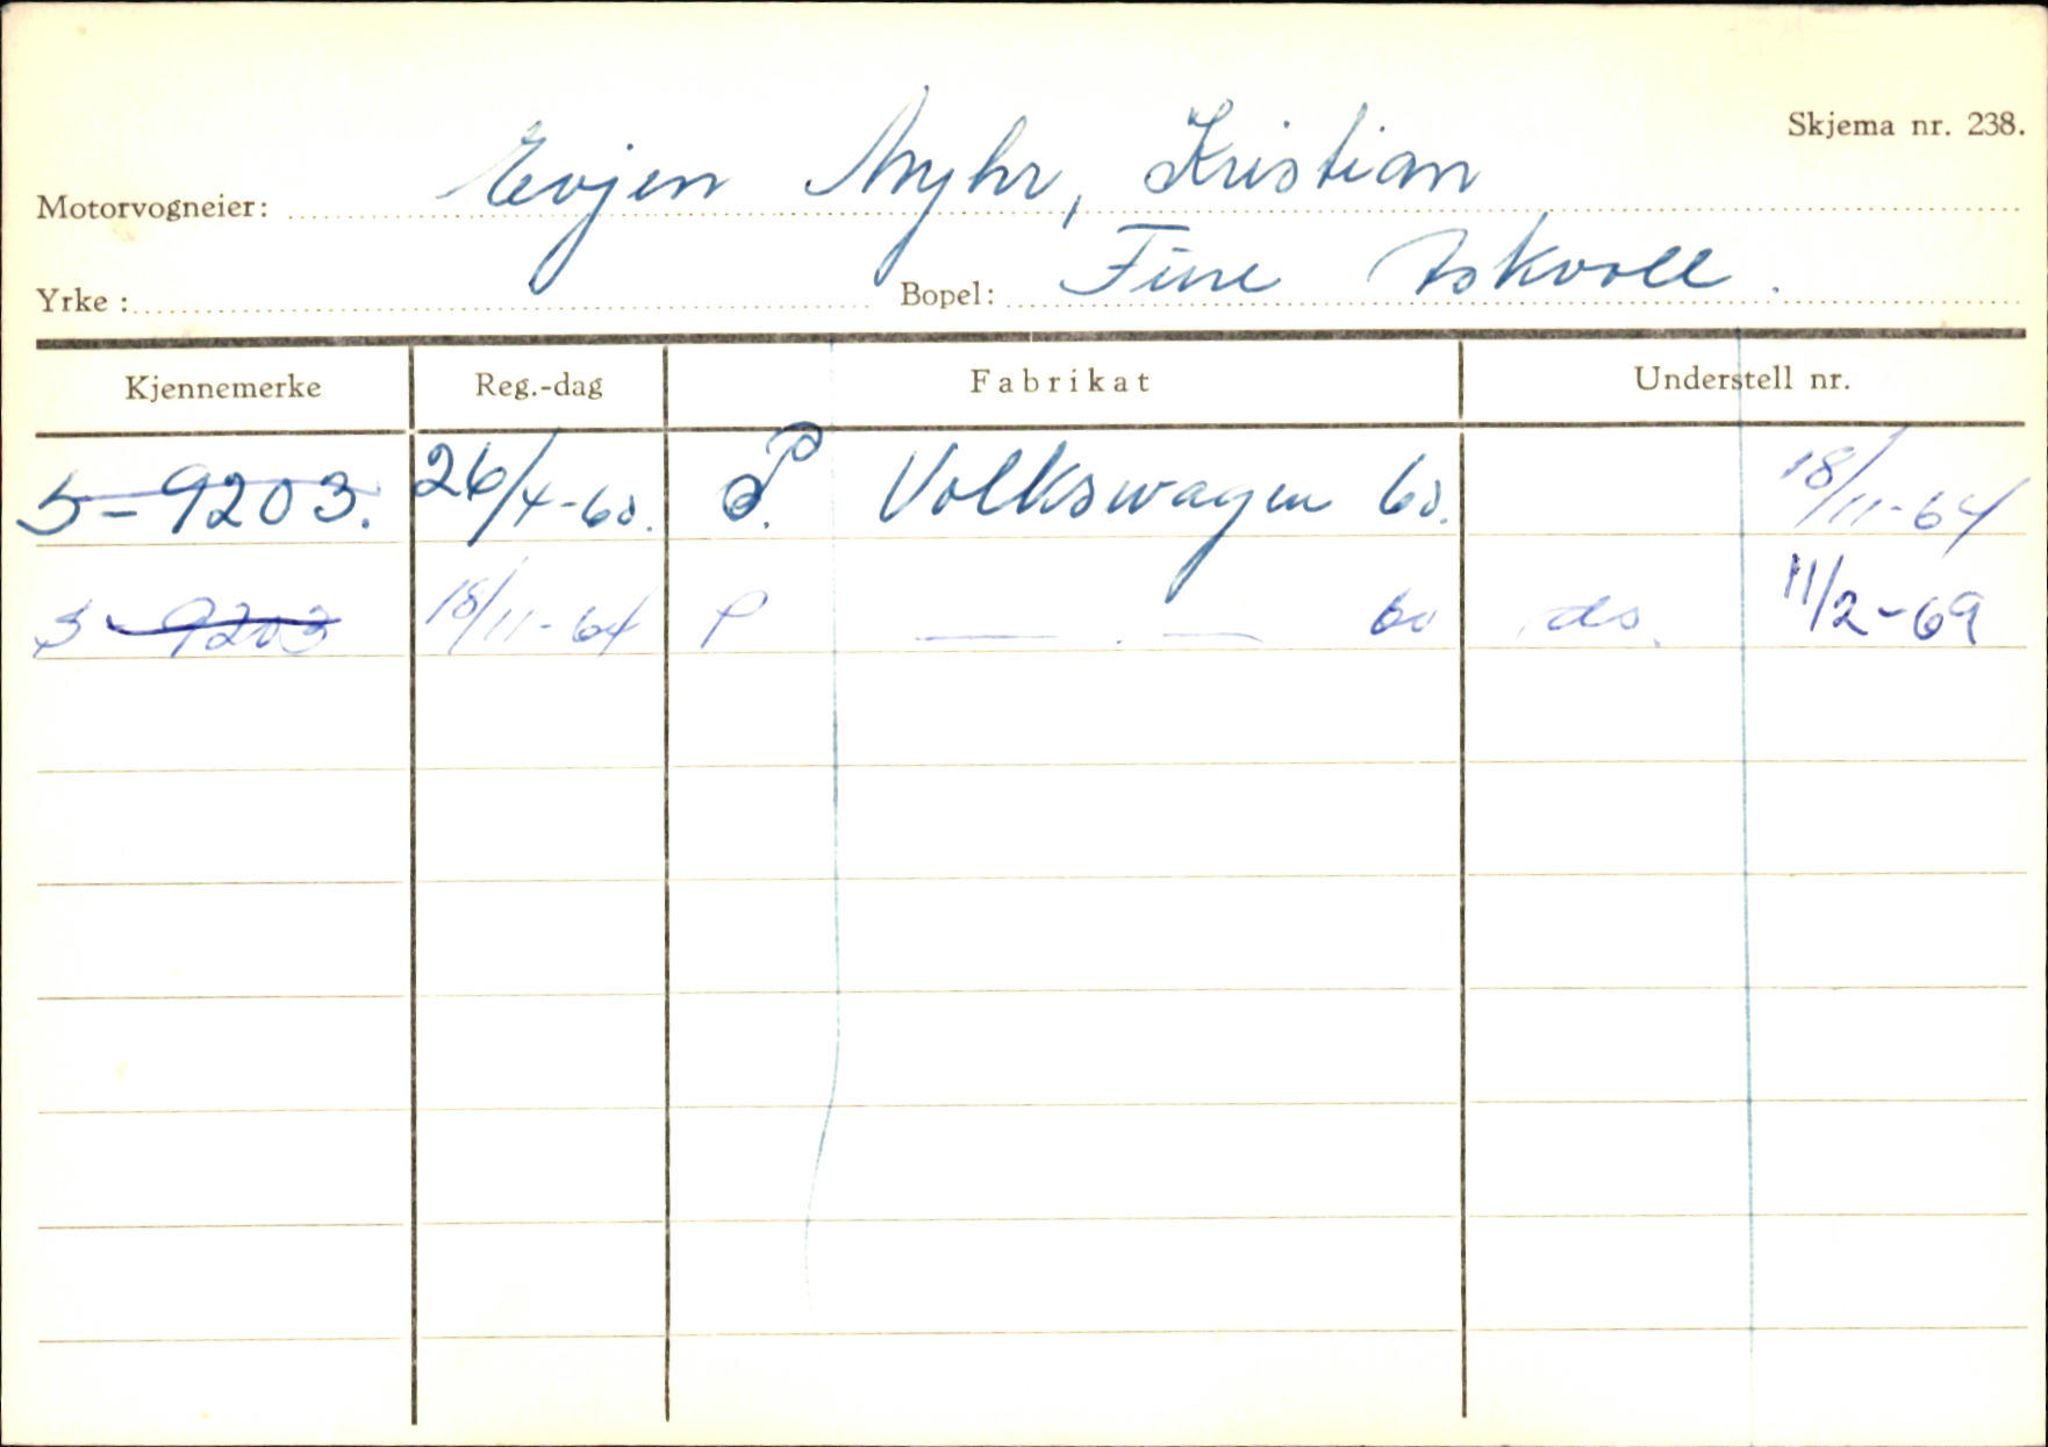 Skjema nr. 238.
Motorvogneier: Evjen Myhr, Kristian
Yrke: Bopel: Fure Askvoll.
Kjennemerke Reg.-dag Fabrikat Understell nr.
S-9203. 26/4-60. P. Volkswagen 60. 18/11-64
S-9203 18/11-64 P —.— 60 ds. 11/2-69